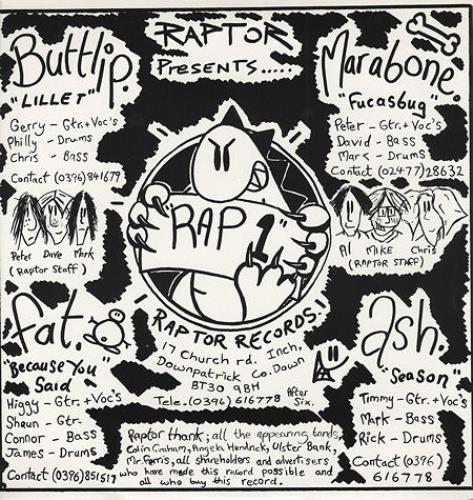 RAPTOR
PRESENTS.....
Buttlip.
"LILLET"
Gerry - Gtr.+Voc's
Philly - Drums
Chris - Bass
Contact (0396) 841679
Peter Dave Mark
(Raptor Staff)
Marabone.
"Fucasbug"
Peter - Gtr.+Voc's
David - Bass
Mark - Drums
Contact (02477) 28632
Al MIKE Chris
(RAPTOR STAFF)
"RAP 1"
RAPTOR RECORDS.
17 Church rd. Inch,
Downpatrick Co. Down
BT30 9BH
Tele. (0396) 616778 After Six.
fat.
"Because You Said
Higgy - Gtr.+Voc's
Shaun - Gtr.
Connor - Bass
James - Drums
Contact (0396) 851517
ash.
"Season"
Timmy - Gtr.+Voc's
Mark - Bass
Rick - Drums
Contact (0396)
616778
Raptor thank; all the appearing bands,
Colin Graham, Angela Hendrick, Ulster Bank,
Mr. Ferris, all shareholders and advertisers
who have made this record possible and
all who buy this record.